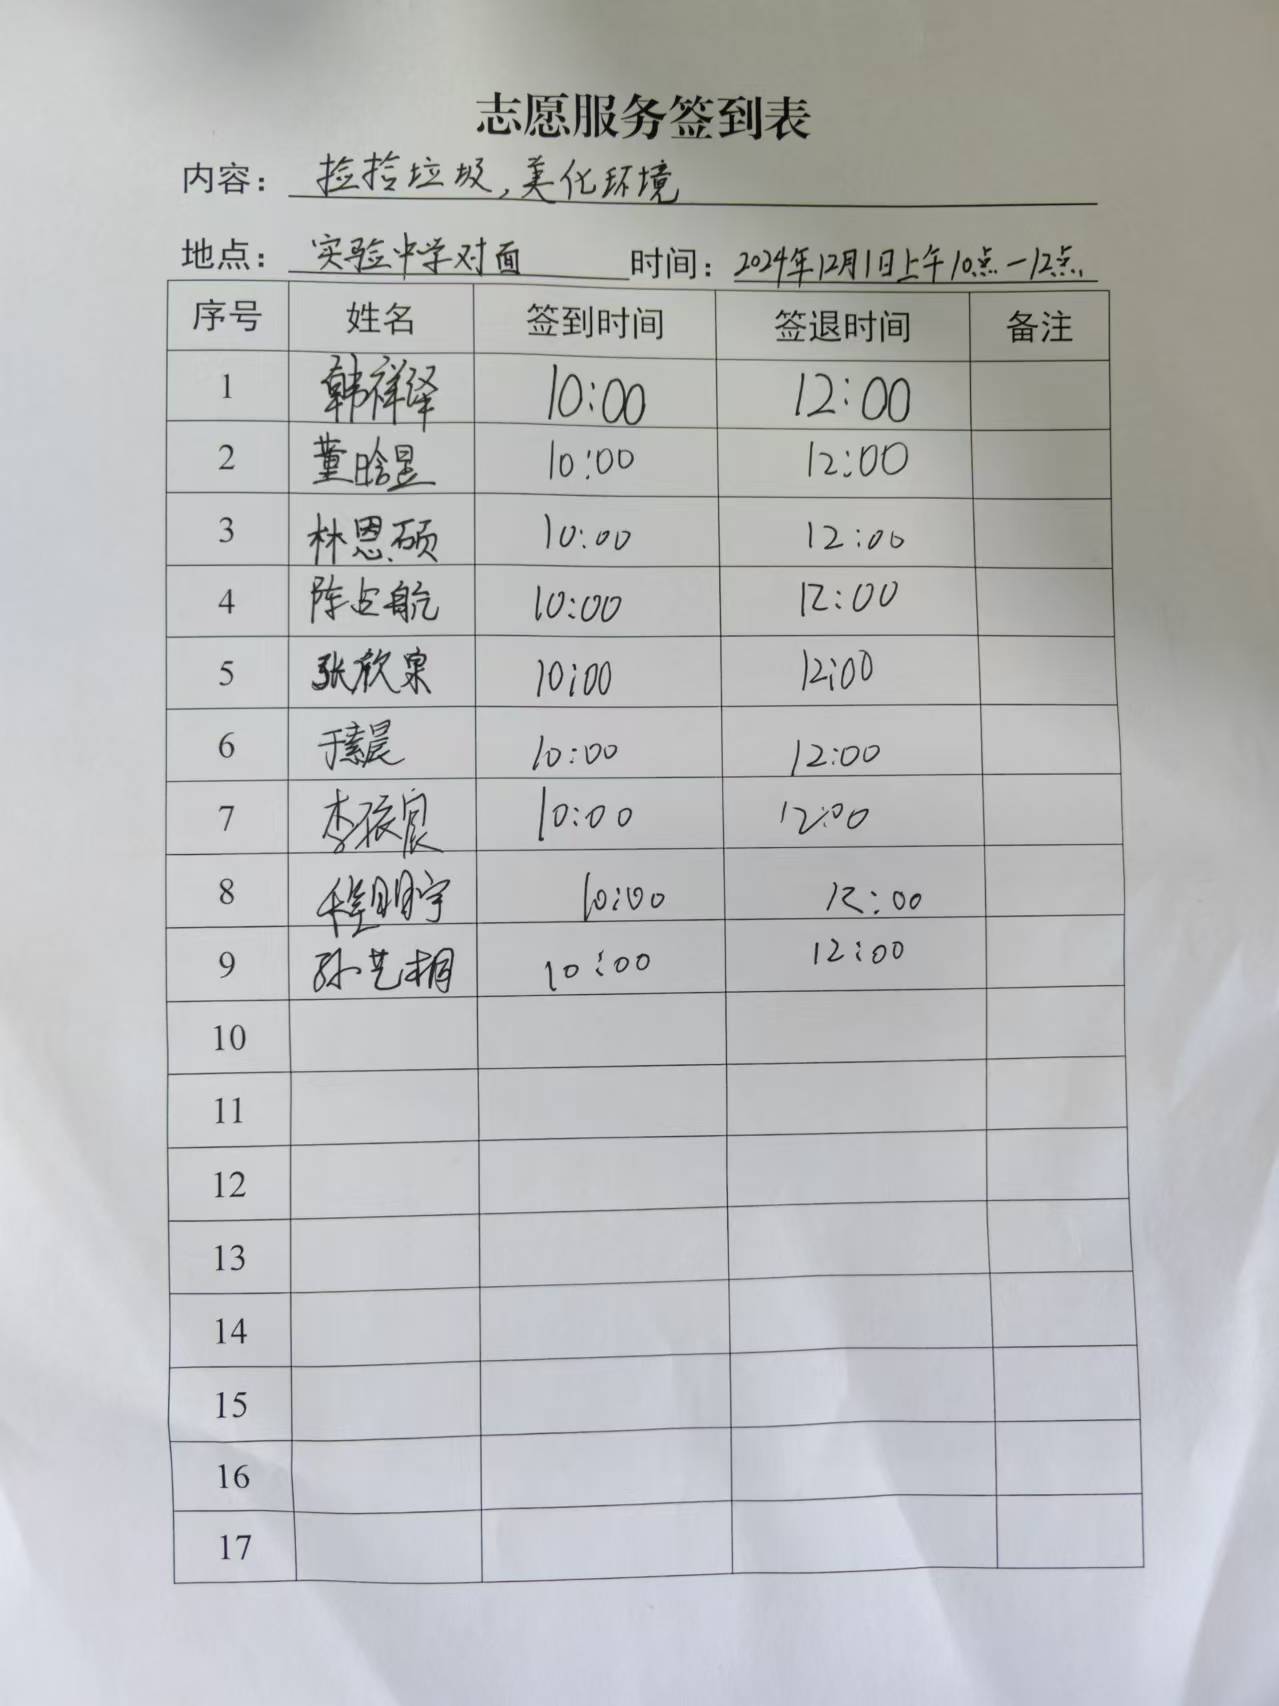 志愿服务签到表
内容：捡拾垃圾，美化环境
地点：实验中学对面 时间：2024年12月1日上午10点－12点
序号 姓名 签到时间 签退时间 备注
1 韩祥泽 10:00 12:00
2 董晗昱 10:00 12:00
3 林恩硕 10:00 12:00
4 陈占航 10:00 12:00
5 张歆泉 10:00 12:00
6 10:00 12:00
7 10:00 12:00
8 程明宇 10:00 12:00
9 孙艺桐 10:00 12:00
10
11
12
13
14
15
16
17